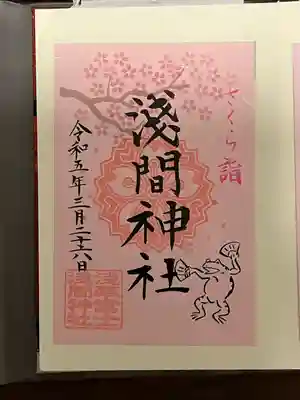 さくら詣
淺間神社
令和五年三月二十六日